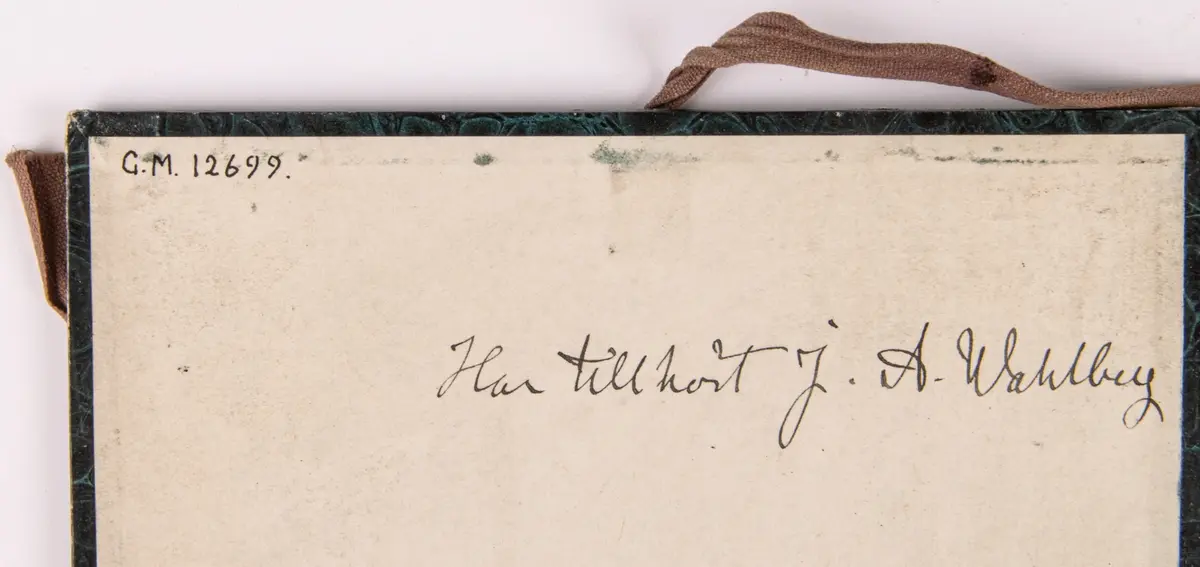 G.M. 12699.
Har tillhört J. A. Wahlberg